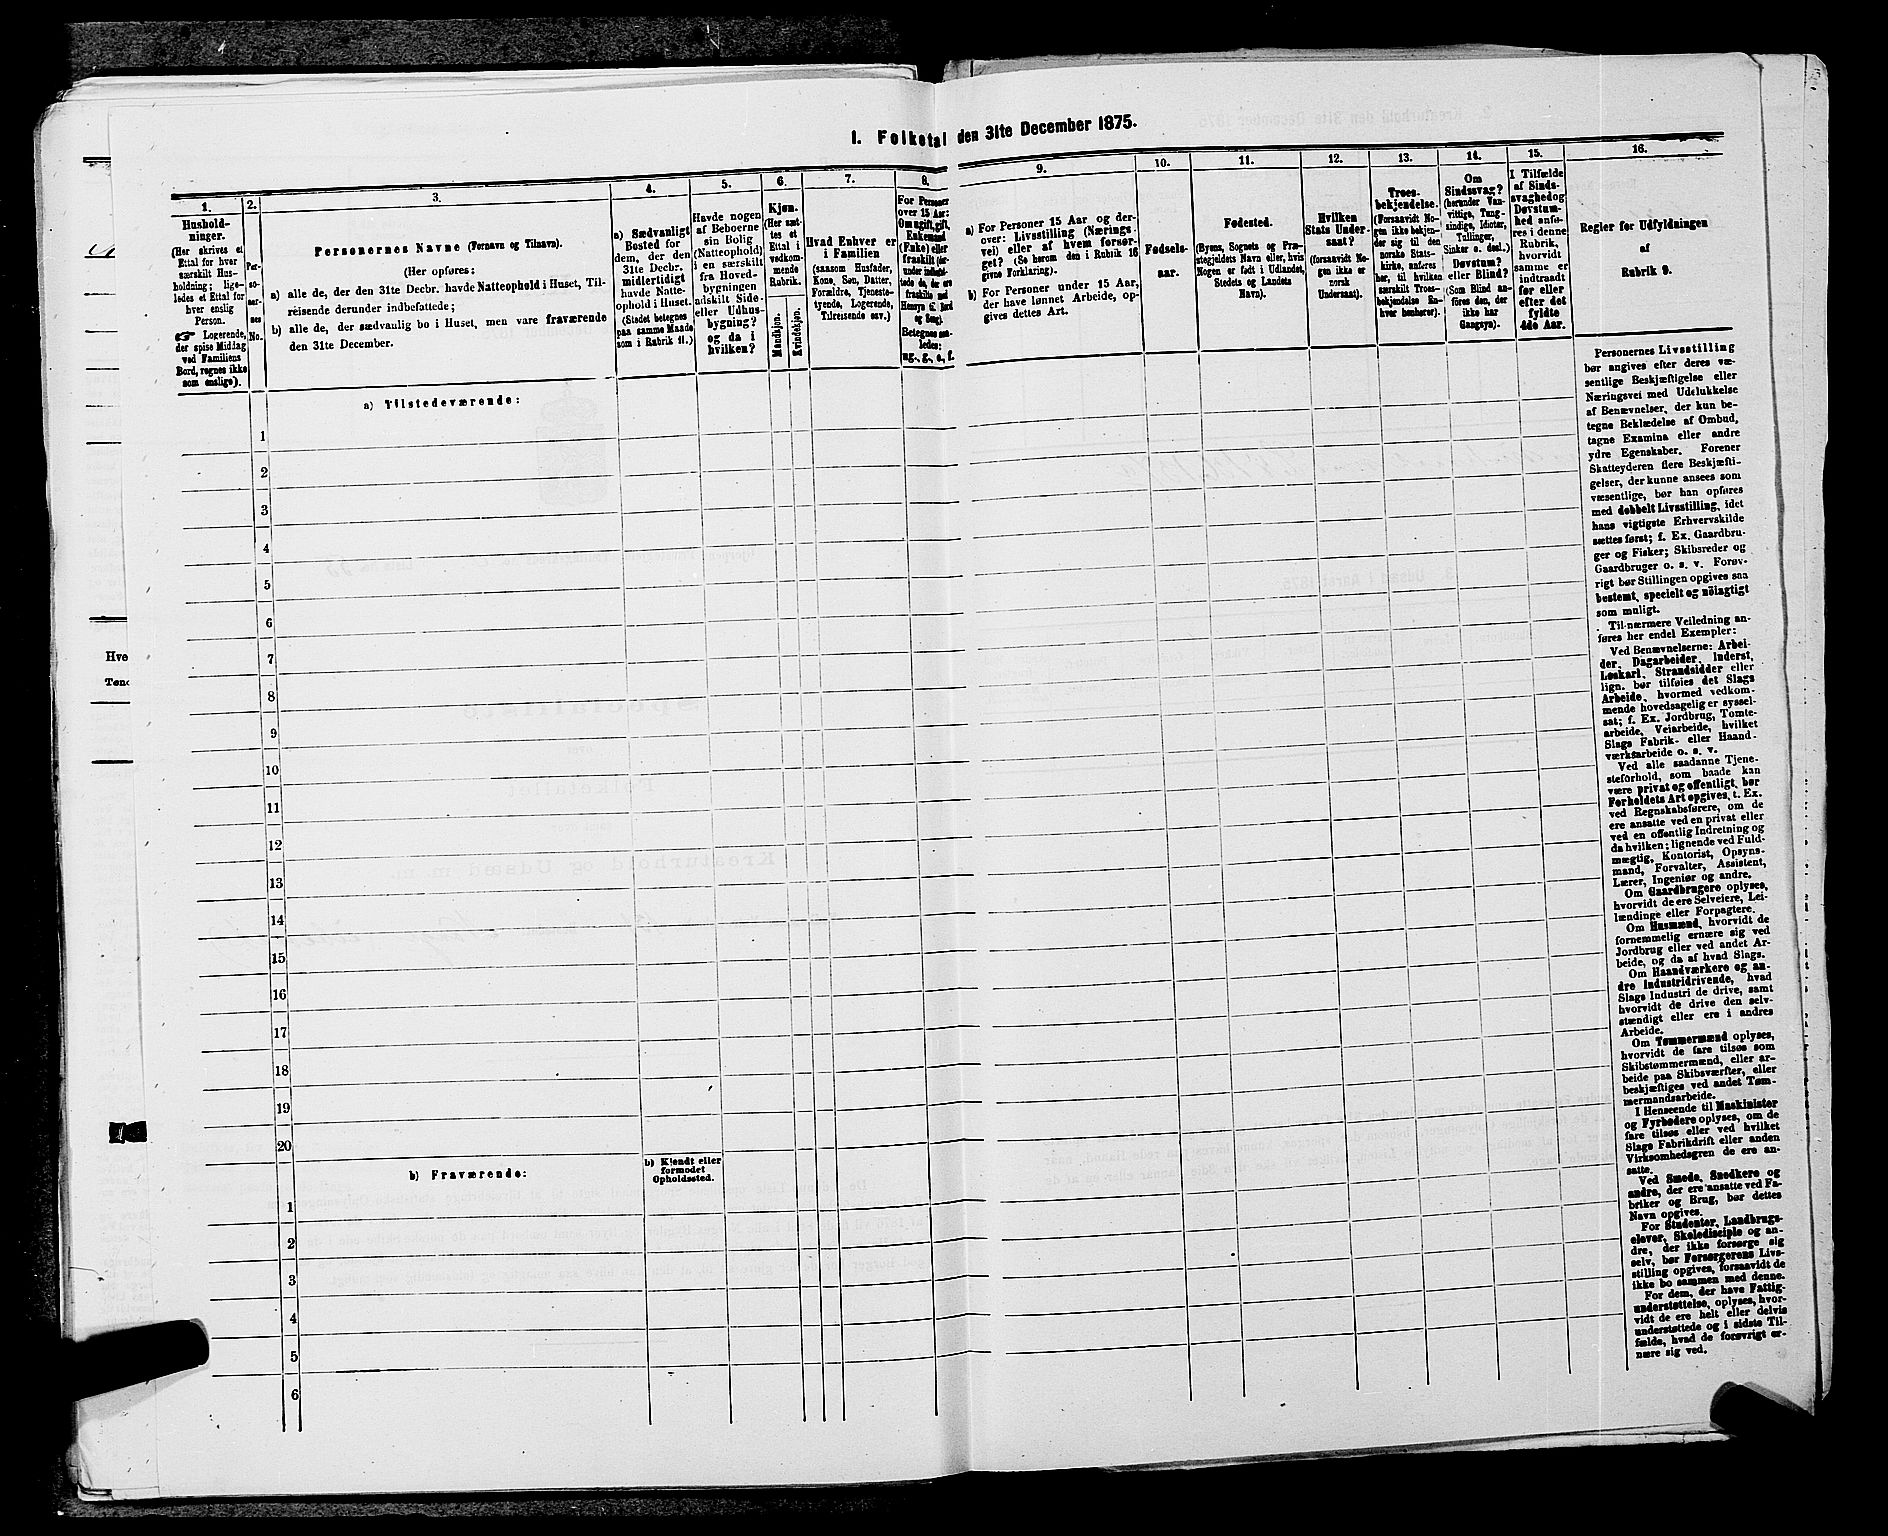 I. Folketal den 31te December 1875.
1.
Hushold-
ninger.
(Her skrives et
Ettal for hver
særskilt Hus-
holdning; lige-
ledes et Ettal for
hver enslig
Person.
☞ Logerende,
der spise Middag
ved Familiens
Bord, regnes ikke
som enslige).
2.
Per-
so-
ner-
nes
No.
3.
Personernes Navne (Fornavn og Tilnavn).
(Her opføres:
a) alle de, der den 31te Decbr. havde Natteophold i Huset, Til-
reisende derunder indbefattede;
b) alle de, der sædvanlig bo i Huset, men vare fraværende
den 31te December.
4.
a) Sædvanligt
Bosted for
dem, der den
31te Decbr.
midlertidigt
havde Natte-
ophold i Huset.
(Stedet betegnes
paa samme Maade
som i Rubrik 11.)
5.
Havde nogen
af Beboerne
sin Bolig
(Natteophold)
i en særskilt
fra Hoved-
bygningen
adskilt Side-
eller Udhus-
bygning?
og da i
hvilken?
6.
Kjøn.
(Her sæt-
tes et
Ettal i
vedkom-
mende
Rubrik.
Mandkjøn.
Kvindekjøn.
7.
Hvad Enhver er
i Familien
(saasom Husfader,
Kone, Søn, Datter,
Forældre, Tjeneste-
tyende, Logerende,
Tilreisende osv.)
8.
For Personer
over 15 Aar:
Om ugift, gift,
Enkemand
(Enke) eller
fraskilt (der-
under indbefat-
tede de, der ere
fraskilte med
Hensyn til Bord
og Seng).
Betegnes saa-
ledes:
ug., g., e., f.
9.
a) For Personer 15 Aar og der-
over: Livsstilling (Nærings-
vei) eller af hvem forsør-
get? (Se herom den i Rubrik 16
givne Forklaring).
b) For Personer under 15 Aar,
der have lønnet Arbeide, op-
gives dettes Art.
10.
Fødsels-
aar.
11.
Fødested.
(Byens, Sognets og Præ-
stegjeldets Navn eller, hvis
Nogen er født i Udlandet,
Stedets og Landets
Navn).
12.
Hvilken
Stats Under-
saat?
(forsaavidt No-
gen ikke er
norsk
Undersaat).
13.
Troes-
bekjendelse.
(Forsaavidt No-
gen ikke bekjen-
der sig til den
norske Stats-
kirke, anføres
her, til hvilken
særskilt Troes-
bekjendelse En-
hver henhører).
14.
Om
Sindssvag?
(herunder Van-
vittige, Tung-
sindige, Idioter,
Tullinger,
Sinker o. desl.)
Døvstum?
eller Blind?
(Som Blind an-
føres den, der
ikke har
Gangsyn).
15.
I Tilfælde
af Sinds-
svaghed og
Døvstum-
hed anfø-
res i denne
Rubrik,
hvorvidt
samme er
indtraadt
før eller
efter det
fyldte
4de Aar.
16.
Regler for Udfyldningen
af
Rubrik 9.
a) Tilstedeværende:
1
2
3
4
5
6
7
8
9
10
11
12
13
14
15
16
17
18
19
20
b) Fraværende:
b) Kjendt eller
formodet
Opholdssted.
1
2
3
4
5
6
Personernes Livsstilling
bør angives efter deres væ-
sentlige Beskjæftigelse eller
Næringsvei med Udelukkelse
af Benævnelser, der kun be-
tegne Beklædelse af Ombud,
tagne Examina eller andre
ydre Egenskaber. Forener
Skatteyderen flere Beskjæfti-
gelser, der kunne ansees som
væsentlige, bør han opføres
med dobbelt Livsstilling, idet
hans vigtigste Erhvervskilde
sættes først; f. Ex. Gaardbru-
ger og Fisker; Skibsreder og
Gaardbruger o. s. v. Forøv-
rigt bør Stillingen opgives saa
bestemt, specielt og nöiagtigt
som muligt.
Til nærmere Veiledning an-
føres her endel Exempler:
Ved Benævnelserne: Arbei-
der, Dagarbeider, Inderst,
Løskarl, Strandsidder eller
lign. bør tilføies det Slags
Arbeide, hvormed vedkom-
mende hovedsagelig er syssel-
sat; f. Ex. Jordbrug, Tomte-
arbeide, Veiarbeide, hvilket
Slags Fabrik- eller Haand-
værksarbeide o. s. v.
Ved alle saadanne Tjene-
steforhold, som baade kan
være privat og offentligt, bør
Forholdets Art opgives, t. Ex.
ved Regnskabsførere, om de
ere ansatte ved en privat eller
ved en offentlig Indretning og
da hvilken; lignende ved Fuld-
mægtig, Kontorist, Opsyns-
mand, Forvalter, Assistent,
Lærer, Ingeniør og andre.
Om Gaardbrugere oplyses,
hvorvidt de ere Selveiere, Lei-
lændinge eller Forpagtere.
Om Husmænd, hvorvidt de
fornemmelig ernære sig ved
Jordbrug eller ved andet Ar-
beide, og da af hvad Slags.
Om Haandværkere og an-
dre Industridrivende, hvad
Slags Industri de drive, samt
hvorvidt de drive den selv-
stændigt eller ere i andres
Arbeide.
Om Tømmermænd oplyses,
hvorvidt de fare tilsøs som
Skibstømmermænd, eller ar-
beide paa Skibsværfter, eller
beskjæftiges ved andet Tøm-
mermandsarbeide.
I Henseende til Maskinister
og Fyrbødere oplyses, om de
fare tilsøs eller ved hvilket
Slags Fabrikdrift eller anden
Virksomhedsgren de ere an-
satte.
Ved Smede, Snedkere og
andre, der ere ansatte ved Fa-
briker og Brug, bør dettes
Navn opgives.
For Studenter, Landbrugs-
elever, Skoledisciple og an-
dre, der ikke forsørge sig
selv, bør Forsørgerens Livs-
stilling opgives, forsaavidt de
ikke bo sammen med denne.
For dem, der have Fattig-
understøttelse, oplyses, hvor-
vidt de ere helt eller delvis
understøttede og i sidste Til-
fælde, hvad de forøvrigt er-
nære sig ved.
Hve
Tønd